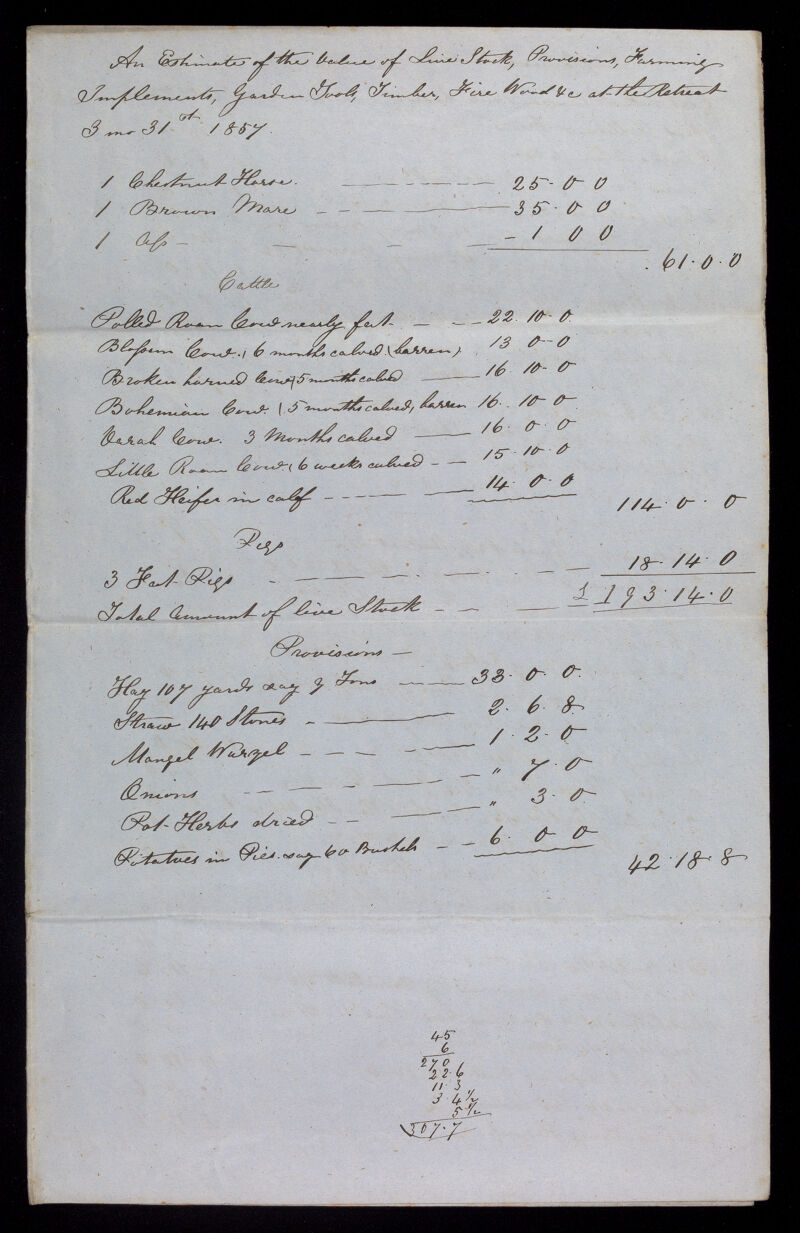 An Estimate of the Value of Live Stock, Provisions, Farming
Implements, Garden Tools, Timber, Fire Wood &c at the Retreat
3 mo 31st 1857.
1 Chestnut Horse. 25 · 0 0
1 Brown Mare 35 · 0 0
1 Ass 1 0 0
61 · 0 · 0
Cattle
Polled Roan Cow nearly fat 22 · 10 · 0
Blossom Cow. (6 months calved (barren) 13 0 - 0
Broken horned Cow (5 months calved 16 10 · 0
Bohemian Cow (5 months calved, barren 16 · 10 · 0
Varah Cow. 3 Months calved 16 · 0 · 0
Little Roan Cow. (6 weeks calved 15 · 10 · 0
Red Heifer in calf 14 · 0 · 0
114 · 0 · 0
Pigs
3 Fat Pigs 18 · 14 · 0
Total amount of live Stock £ 193 · 14 · 0
Provisions —
Hay 107 yards say 9 Tons 33 · 0 · 0
Straw 140 Stones 2 · 6 · 8
Mangel Wurzel 1 · 2 · 0
Onions " 7 · 0
Pot-Herbs dried " 3 · 0
Potatoes in Pies say 60 Bushels 6 · 0 0
42 · 18 · 8
45
6
270
22 · 6
11 · 3
3 · 4 1/2
5 1/2
307 · 7